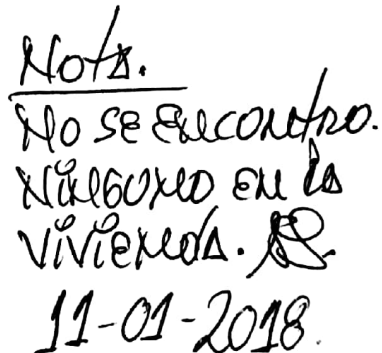 Nota.
No se encontro.
Ninguno en la
vivienda.
11-01-2018.